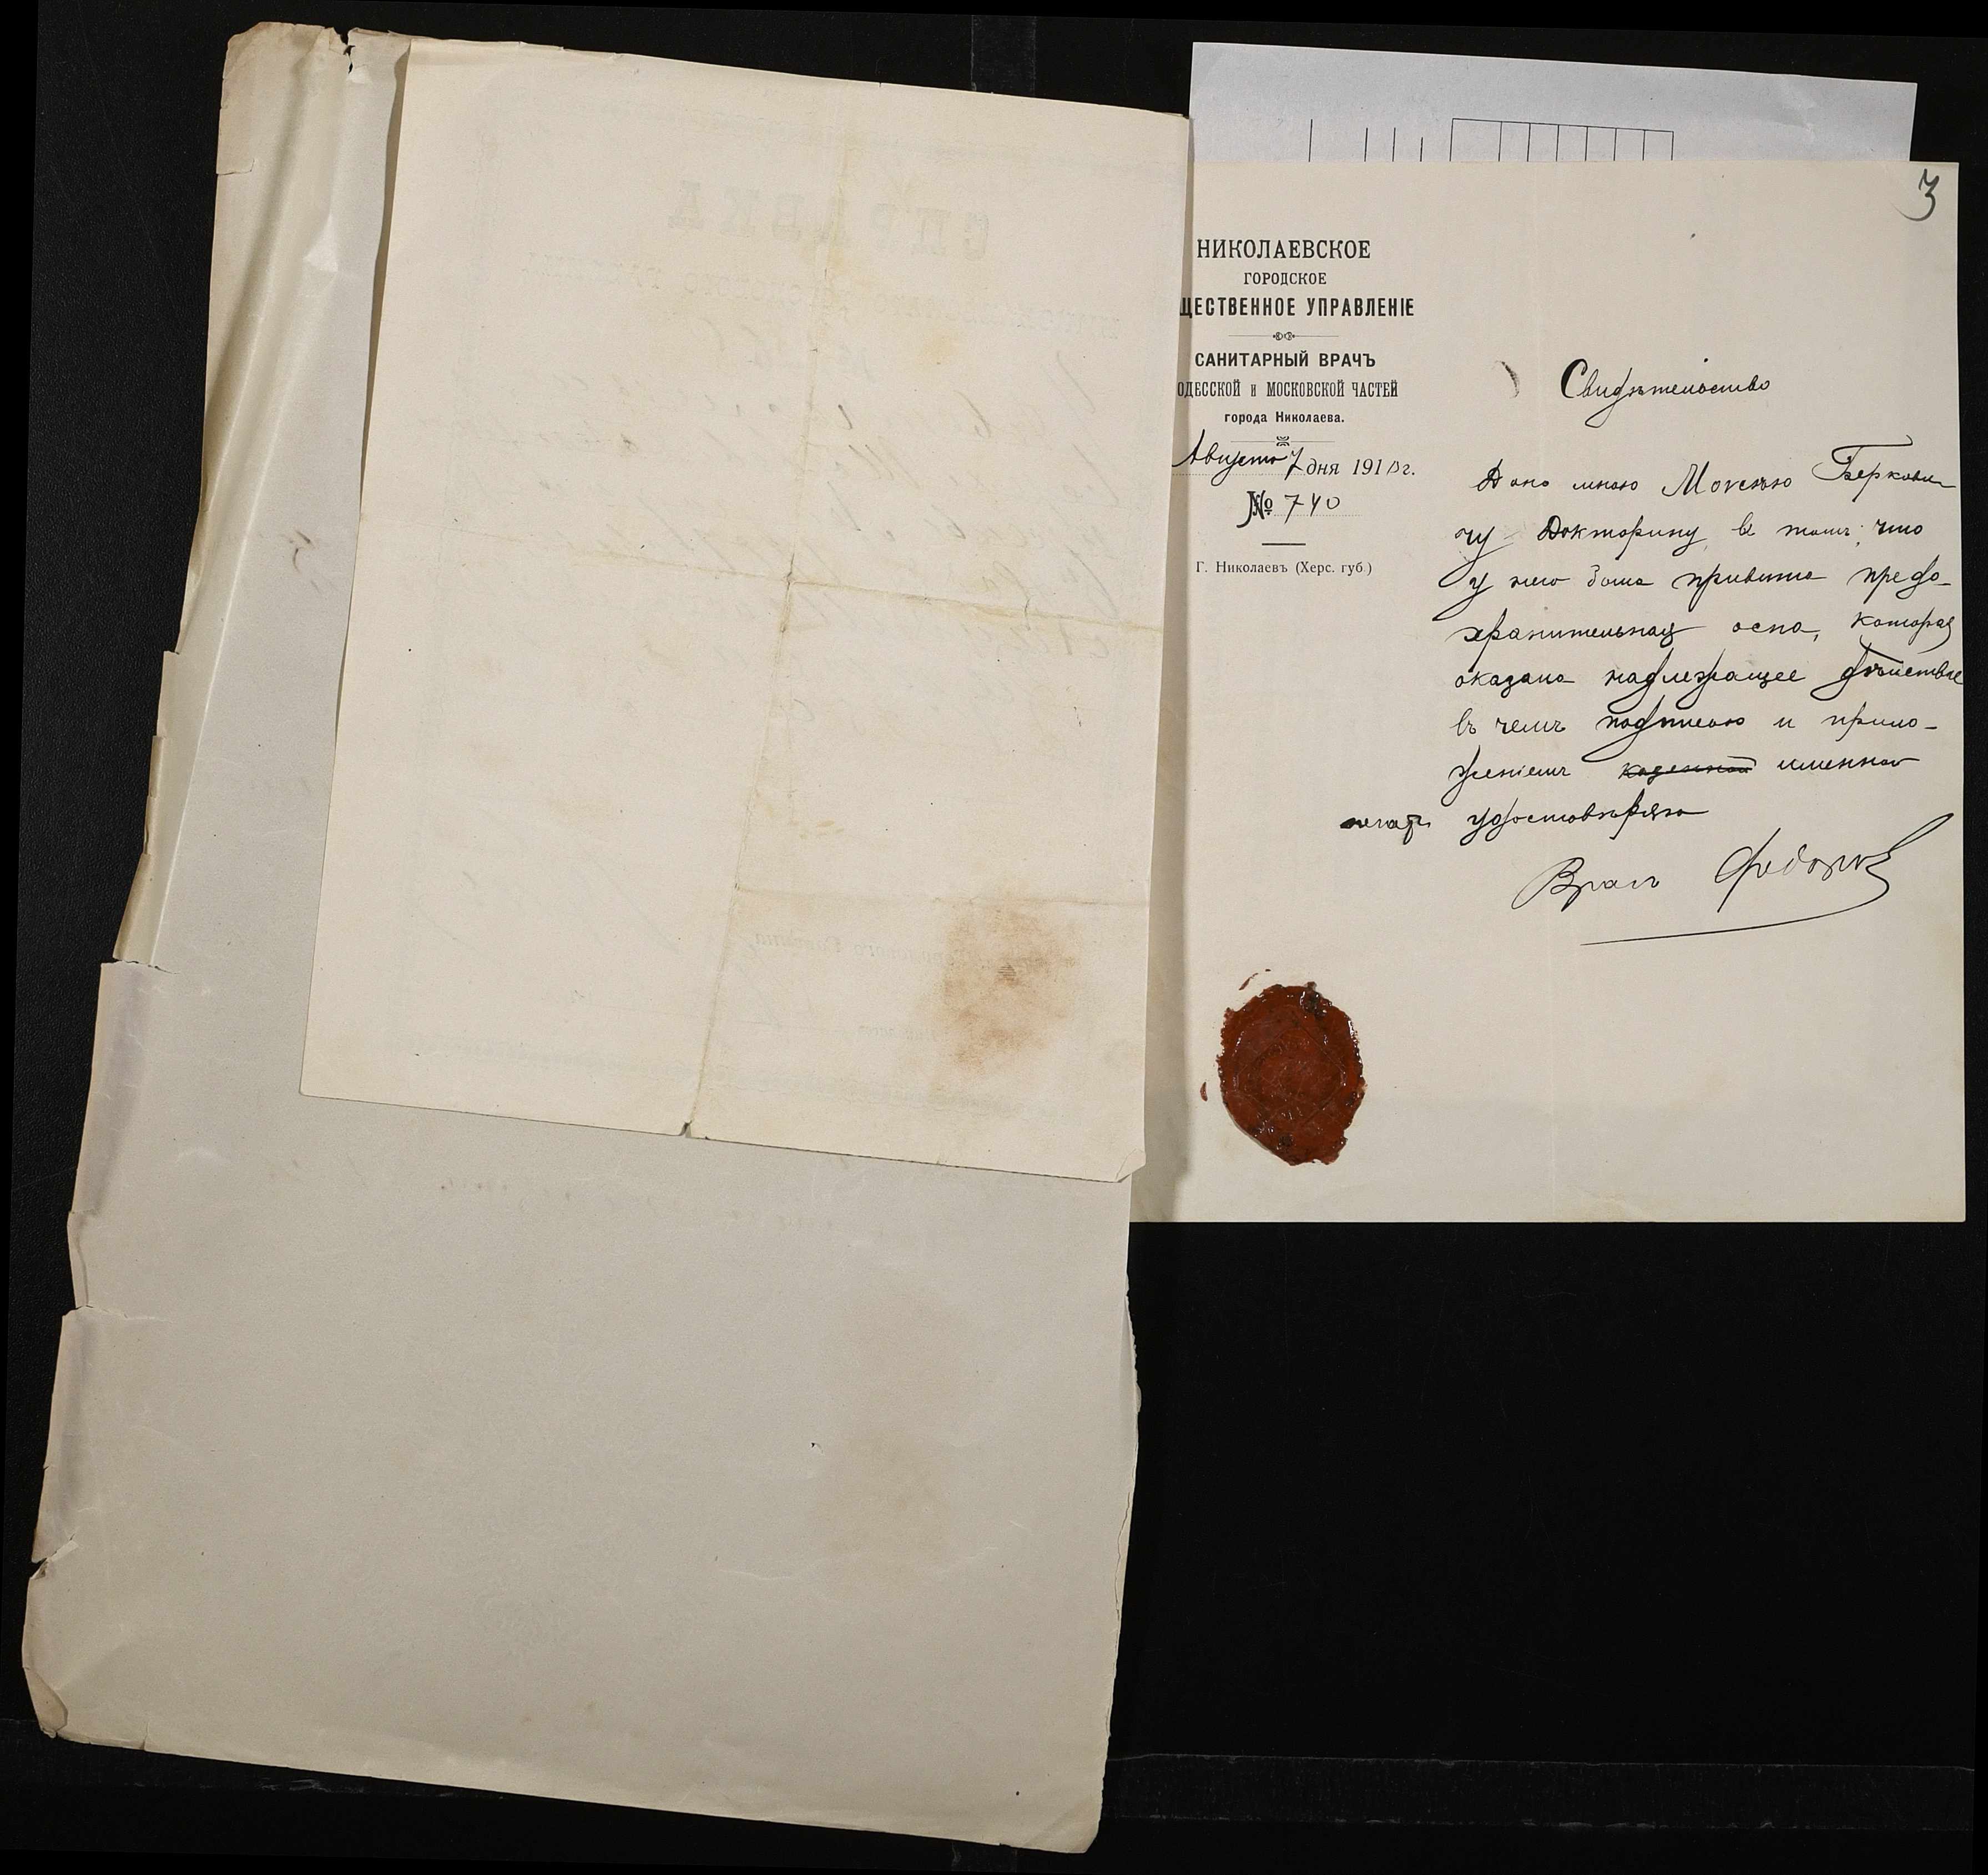 3
НИКОЛАЕВСКОЕ
ГОРОДСКОЕ
ЩЕСТВЕННОЕ УПРАВЛЕНІЕ
САНИТАРНЫЙ ВРАЧЪ
ОДЕССКОЙ и МОСКОВСКОЙ ЧАСТЕЙ
города Николаева.
Августа 7 дня 191 г.
№ 740
Г. Николаевъ (Херс. губ.)
Свидѣтельство
Дано мною Моисею Беркови
чу Докторину, в томъ, что
у него была привита предо-
хранительная оспа, которая
оказала надлежащее дѣйствіе
въ чемъ подписью и прило-
женіемъ казенной именной
печати удостовѣряю
Врачъ
СПРАВКА